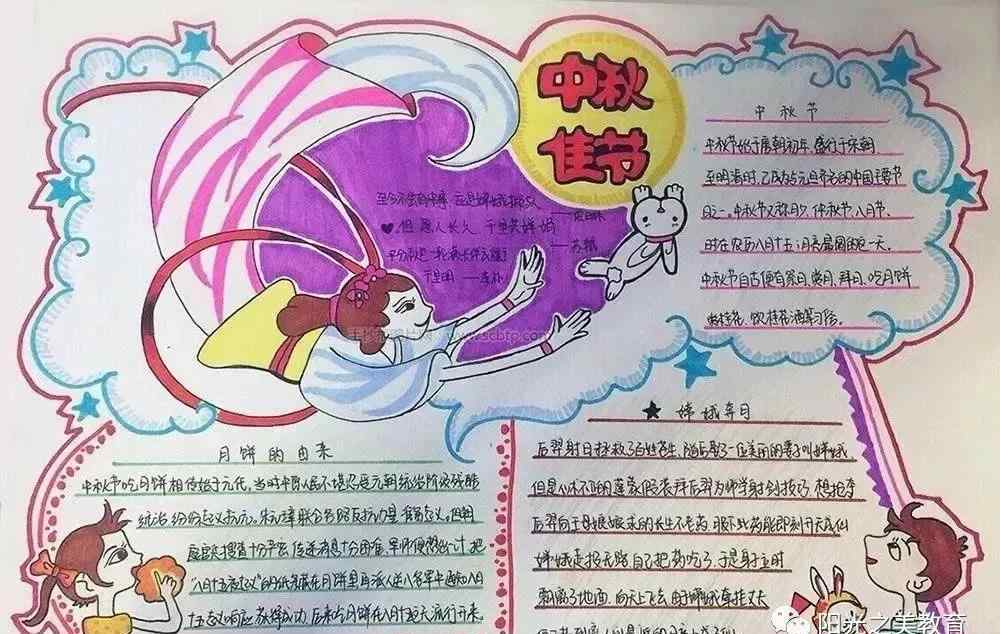 中秋
佳节
中秋节
中秋节始于唐朝初年,盛行于宋朝
至明清时,已成为与元旦齐名的中国主要节
日之一。中秋节又称月夕、仲秋节、八月节、
时在农历八月十五;月亮最圆的这一天。
中秋节自古便有祭月、赏月、拜月、吃月饼
赏桂花、饮桂花酒等习俗。
但愿人长久,千里共婵娟
——苏轼
www.scbtp.com
★ 嫦娥奔月
后羿射日拯救了百姓苍生,随后娶了一位美丽的妻子叫嫦娥
但是心怀不轨的蓬蒙假装拜后羿为师学射剑技巧 想把李
后羿向王母娘娘求的长生不老药 服下此药能即刻升天成仙
嫦娥走投无路 自己把药吃了 于是身立时
飘离了地面 向天上飞去 由于嫦娥牵挂丈夫
月饼的由来
中秋节吃月饼相传始于元代,当时中原人民不堪忍受元朝统治阶级残酷
统治 纷纷起义抗元。朱元璋联合各路反抗力量 准备起义,但朝
庭官兵搜查十分严密 传递消息十分困难 军师便想出一计 把
"八月十五夜起义"的纸条藏在月饼里 再派人送入各军中通知八月
十五夜响应 起义成功 后来吃月饼在八月十五这天流行开来。
阳光之美教育